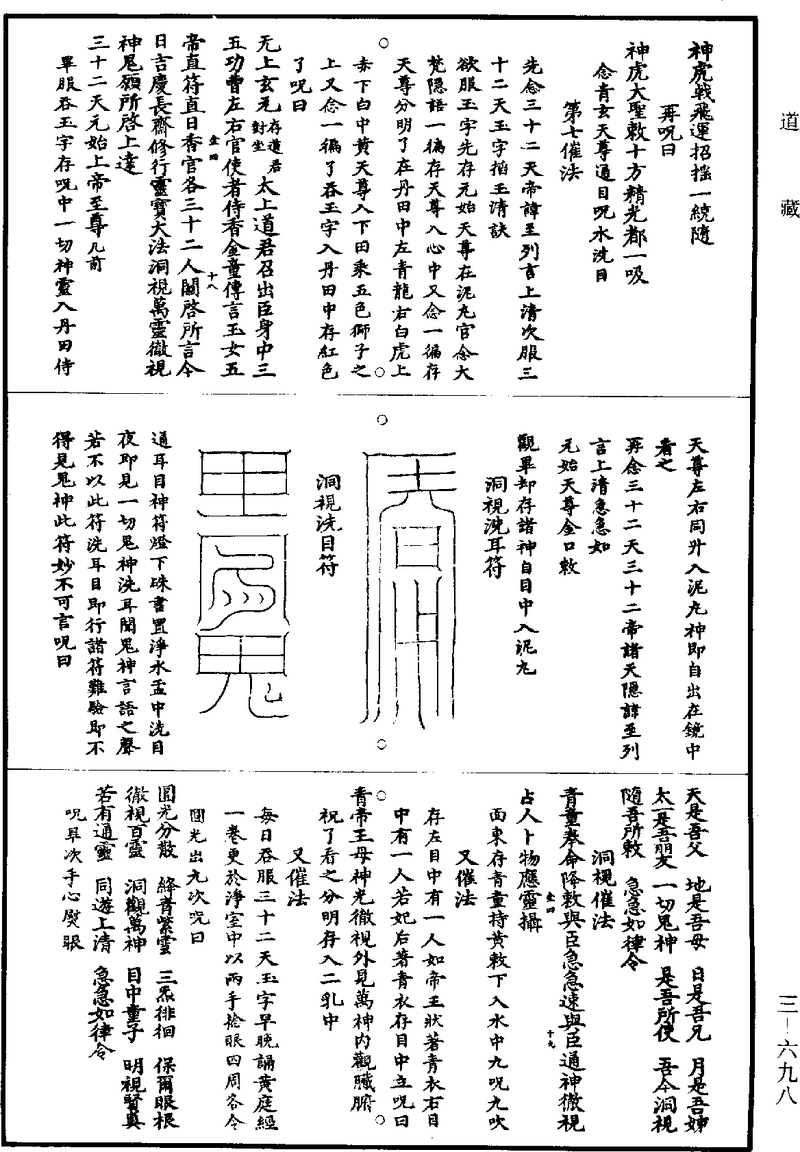 道藏
神虎戟飛運招搖一統隨
再呪曰
神虎大聖敕十方精光都一吸
念青玄天尊通目呪水洗目
第七催法
先念三十二天帝諱至列言上清次服三
十二天玉字掐玉清訣
欲服玉字先存元始天尊在泥丸宮念大
梵隱語一徧存天尊入心中又念一徧存
天尊分明了在丹田中左青龍右白虎上
赤下白中黃天尊入下田乘五色獅子之
上又念一徧了吞玉字入丹田中存紅色
了呪曰
无上玄元存道君對坐太上道君召出臣身中三
五功曹左右官使者侍香金童傳言玉女五
帝直符直日香官各三十二人關啓所言今
日吉慶長齋修行靈寶大法洞視萬靈徹視
神鬼願所啓上達
三十二天元始上帝至尊几前
畢服吞玉字存呪中一切神靈入丹田侍
天尊左右同升入泥丸神即自出在鏡中
看之
再念三十二天三十二帝諸天隱諱至列
言上清急急如
元始天尊金口敕
觀畢却存諸神自目中入泥丸
洞視洗耳符
洞視洗目符
通耳目神符燈下硃書置淨水盂中洗目
夜即見一切鬼神洗耳聞鬼神言語之聲
若不以此符洗耳目即行諸符難驗即不
得見鬼神此符妙不可言呪曰
天是吾父 地是吾母 日是吾兄 月是吾姊
太一是吾朋友 一切鬼神 是吾所使 吾今洞視
隨吾所敕 急急如律令
洞視催法
青童奉命降敕與臣急急速與臣通神徹視
占人卜物應靈攝
面東存青童持黃敕下入水中九呪九吹
又催法
存左目中有一人如帝王狀著青衣右目
中有一人若妃后著青衣存目中立呪曰
青帝王母神光徹視外見萬神内觀臟腑
祝了看之分明存入二乳中
又催法
每日吞服三十二天玉字早晚誦黃庭經
一卷更於淨室中以兩手捻眼四周各令
圓光出九次呪曰
圓光分散 絳普紫雲 三炁徘徊 保爾眼根
徹視百靈 洞觀萬神 目中童子 明視賢真
若有通靈 同遊上清 急急如律令
呪畢次手心熨眼
三－六九八